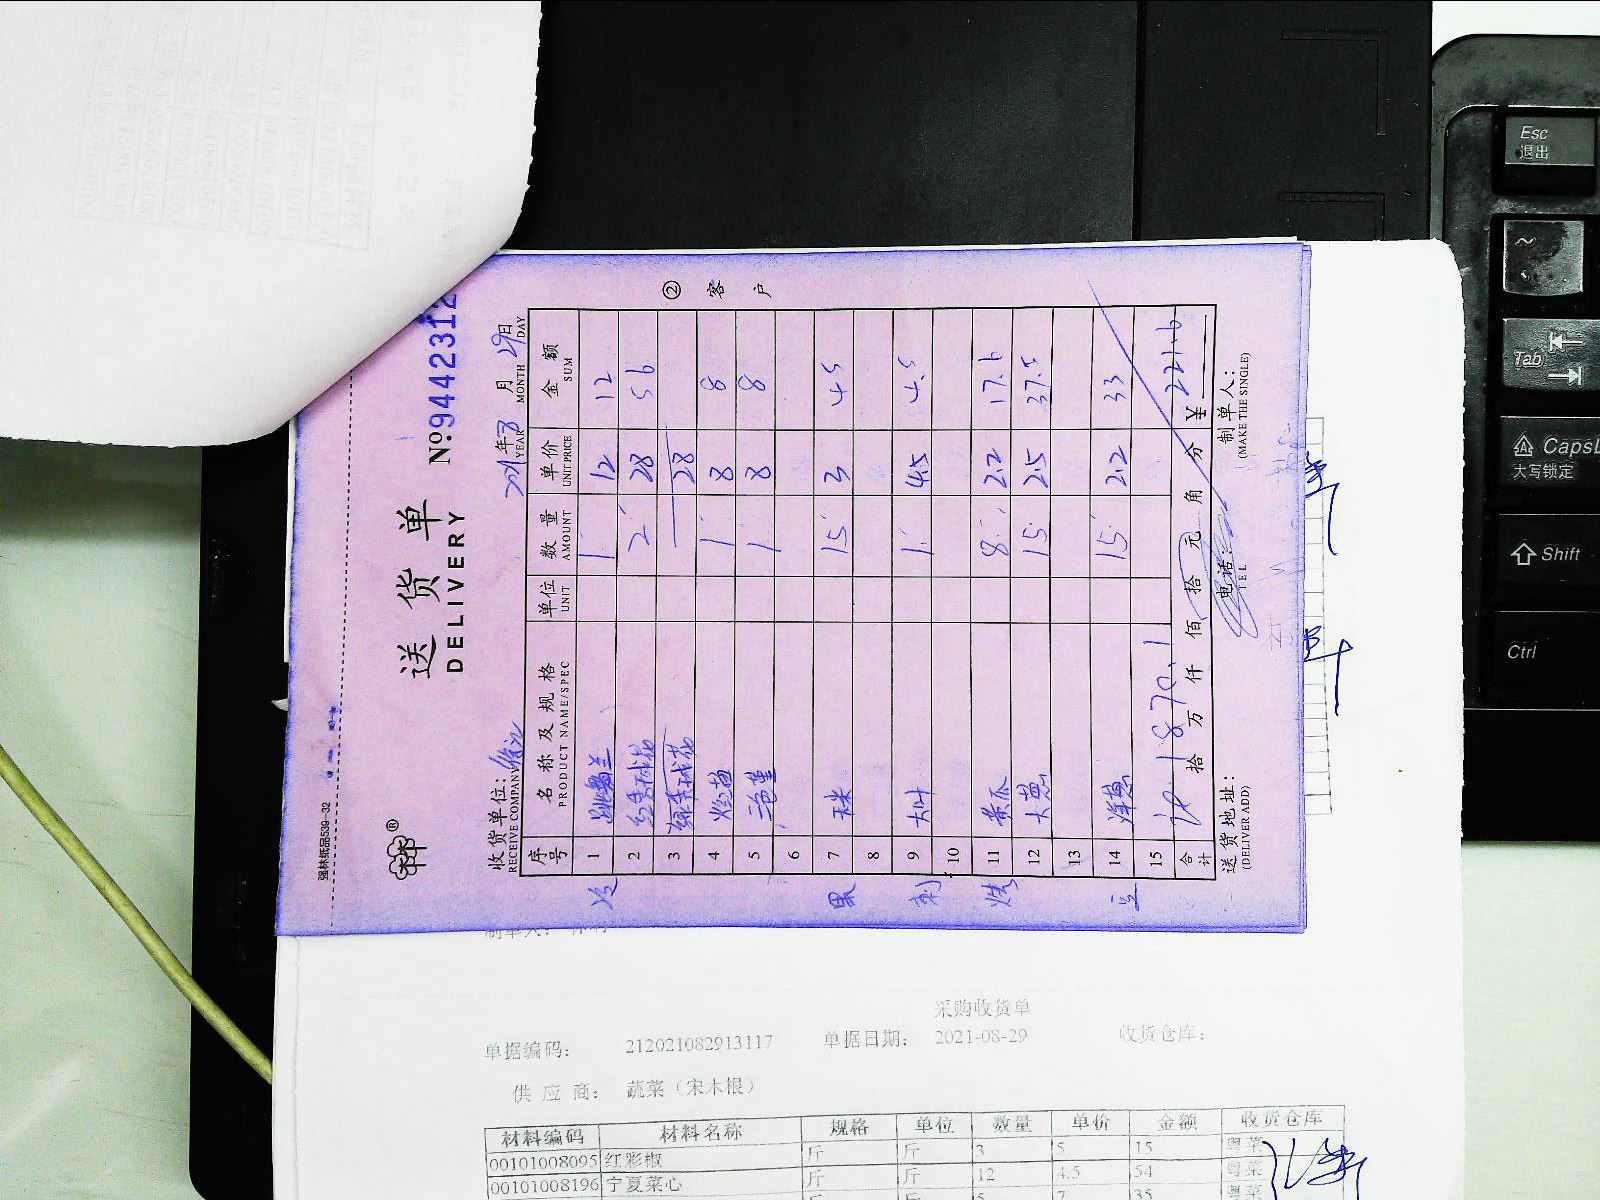 强林纸品539-32
送货单
DELIVERY
№:9442312
收货单位:
RECEIVE COMPANY
2021年8月29日
YEAR MONTH DAY
序号 名称及规格 PRODUCT NAME/SPEC 单位 UNIT 数量 AMOUNT 单价 UNIT PRICE 金额 SUM
1 1 12 12
2 2 28 56
3 28
4 1 8 8
5 三色堇 1 8 8
6
7 玉米 15 3 45
8
9 大叶 1 4.5 4.5
10
11 黄瓜 8 2.2 17.6
12 大葱 15 2.5 37.5
13
14 洋葱 15 2.2 33
15
合计 拾 万 仟 佰 拾 元 角 分 ¥ 221.6
1870.1
送货地址:
(DELIVER ADD)
电话:
TEL
制单人:
(MAKE THE SINGLE)
② 客户
采购收货单
单据编码: 212021082913117 单据日期: 2021-08-29 收货仓库:
供应商: 蔬菜(宋木根)
材料编码 材料名称 规格 单位 数量 单价 金额 收货仓库
00101008095 红彩椒 斤 斤 3 5 15 粤菜
00101008196 宁夏菜心 斤 斤 12 4.5 54 粤菜
斤 斤 5 7 35 粤菜
Esc
退出
~
Tab
CapsL
大写锁定
Shift
Ctrl